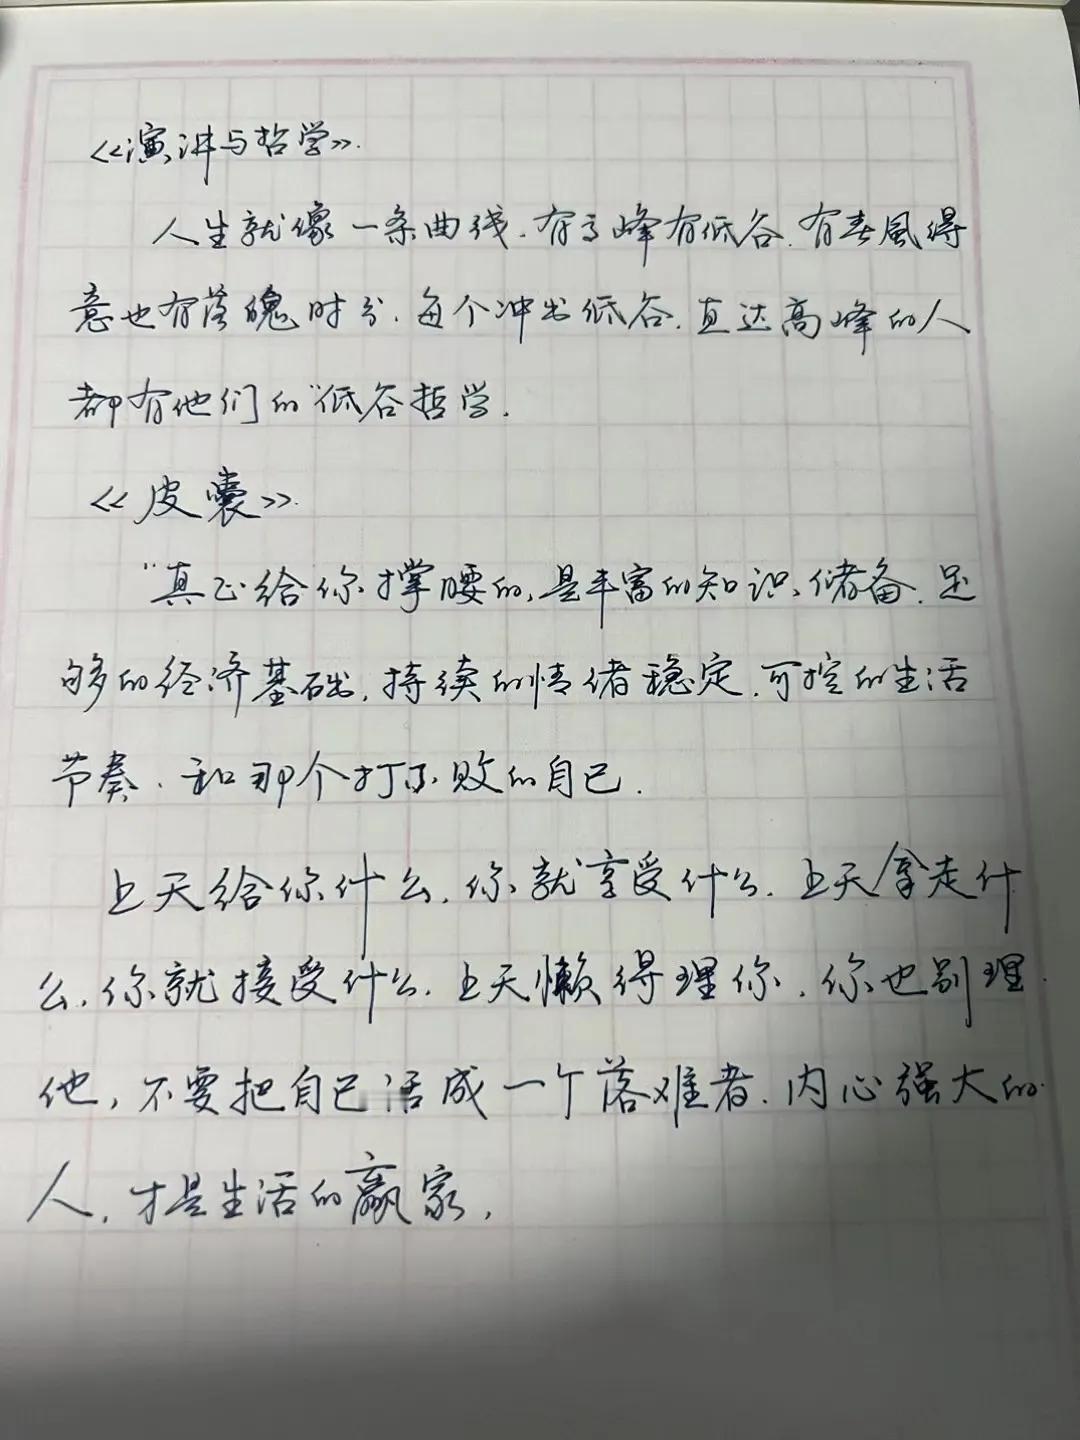 《演讲与哲学》.
人生就像一条曲线.有高峰有低谷.有春風得
意也有落魄时分.每个冲出低谷.直达高峰的人
都有他们的"低谷哲学.
《皮囊》.
"真正给你撑腰的,是丰富的知识、储备.足
够的经济基础,持续的情绪稳定.可控的生活
节奏.和那个打不败的自己.
上天给你什么.你就享受什么.上天拿走什
么.你就接受什么.上天懒得理你.你也别理.
他,不要把自己活成一个落难者.内心强大的.
人.才是生活的赢家,